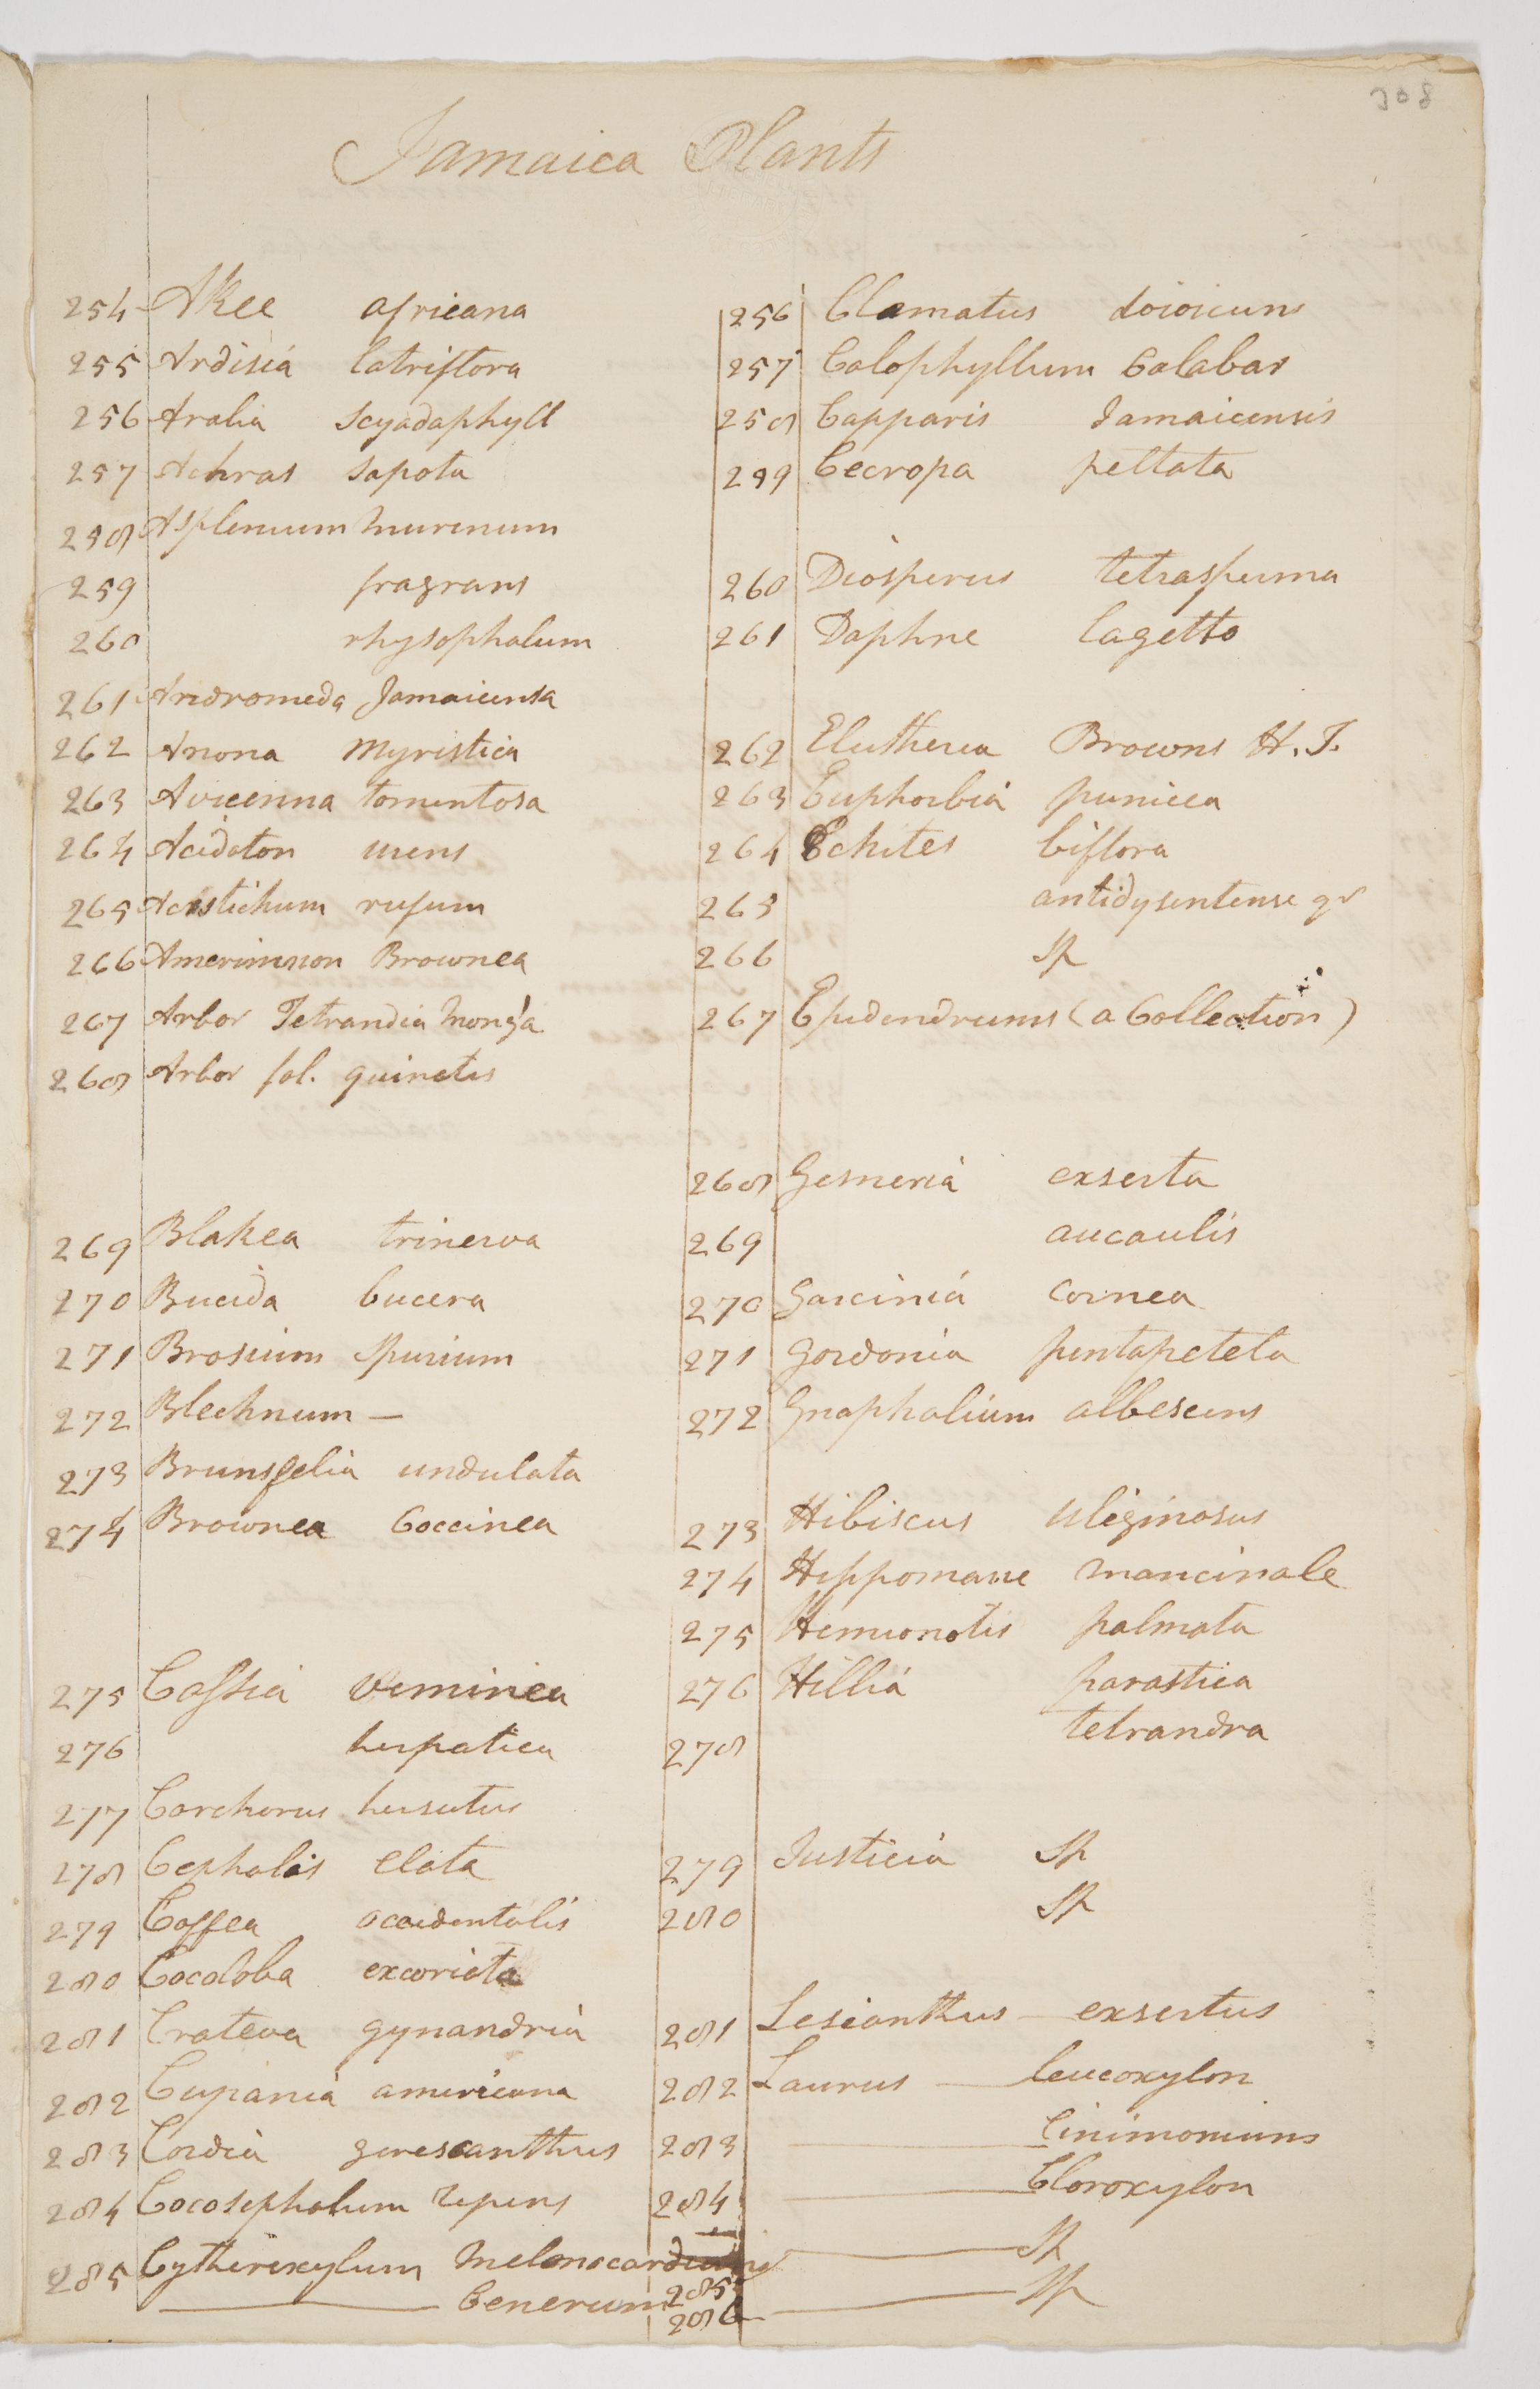 308
Jamaica Plants
254 Akee africana
255 Ardisia latriflora
256 Aralia Scyadaphyll
257 Achras Sapota
258 Asplenium murinum
259 fragrans
260 rhysophalum
261 Andromeda Jamaicensa
262 Anona Myristica
263 Avicenna tomentosa
264 Acidoton urens
265 Acrstichum rufum
266 Amerimnon Brownea
267 Arbor Tetrandia Mong'a
268 Arbor fol. quinatis
269 Blakea trinerva
270 Bucida bucera
271 Brosium Spurium
272 Blechnum —
273 Brunsfelia undulata
274 Brownea Coccinea
275 Cassia viminea
276 herpatica
277 Corchorus hirsutus
278 Cephalis elata
279 Coffea occidentalis
280 Cocoloba excoriata
281 Crateva gynandria
282 Cupania americana
283 Cordia gerescanthus
284 Cocosephalum repens
285 Cytherexylum Melonocardium
——— Cenerum
256 Clamatus doioicuns
257 Calophyllum Calabar
258 Capparis Jamaicensis
259 Cecropa peltata
260 Diosperus tetrasperma
261 Daphne lagetto
262 Elutheria Browns H. J.
263 Euphorbia punicea
264 Echites biflora
265 antidysentense gr
266 Sp
267 Epidendrums (a Collection)
268 Gesneria exserta
269 aucaulis
270 Garcinia Cornea
271 Gordonia pentapetela
272 Gnaphalium albescens
273 Hibiscus uliginosus
274 Hippomane mancinale
275 Hemionotis palmata
276 Hillia parastica
278 tetrandra
279 Justicia Sp
280 Sp
281 Lesianthus — exsertus
282 Laurus — leucoxylon
283 ——— Cinimoniums
284 ——— Cloroxylon
285 ——— Sp
286 ——— Sp